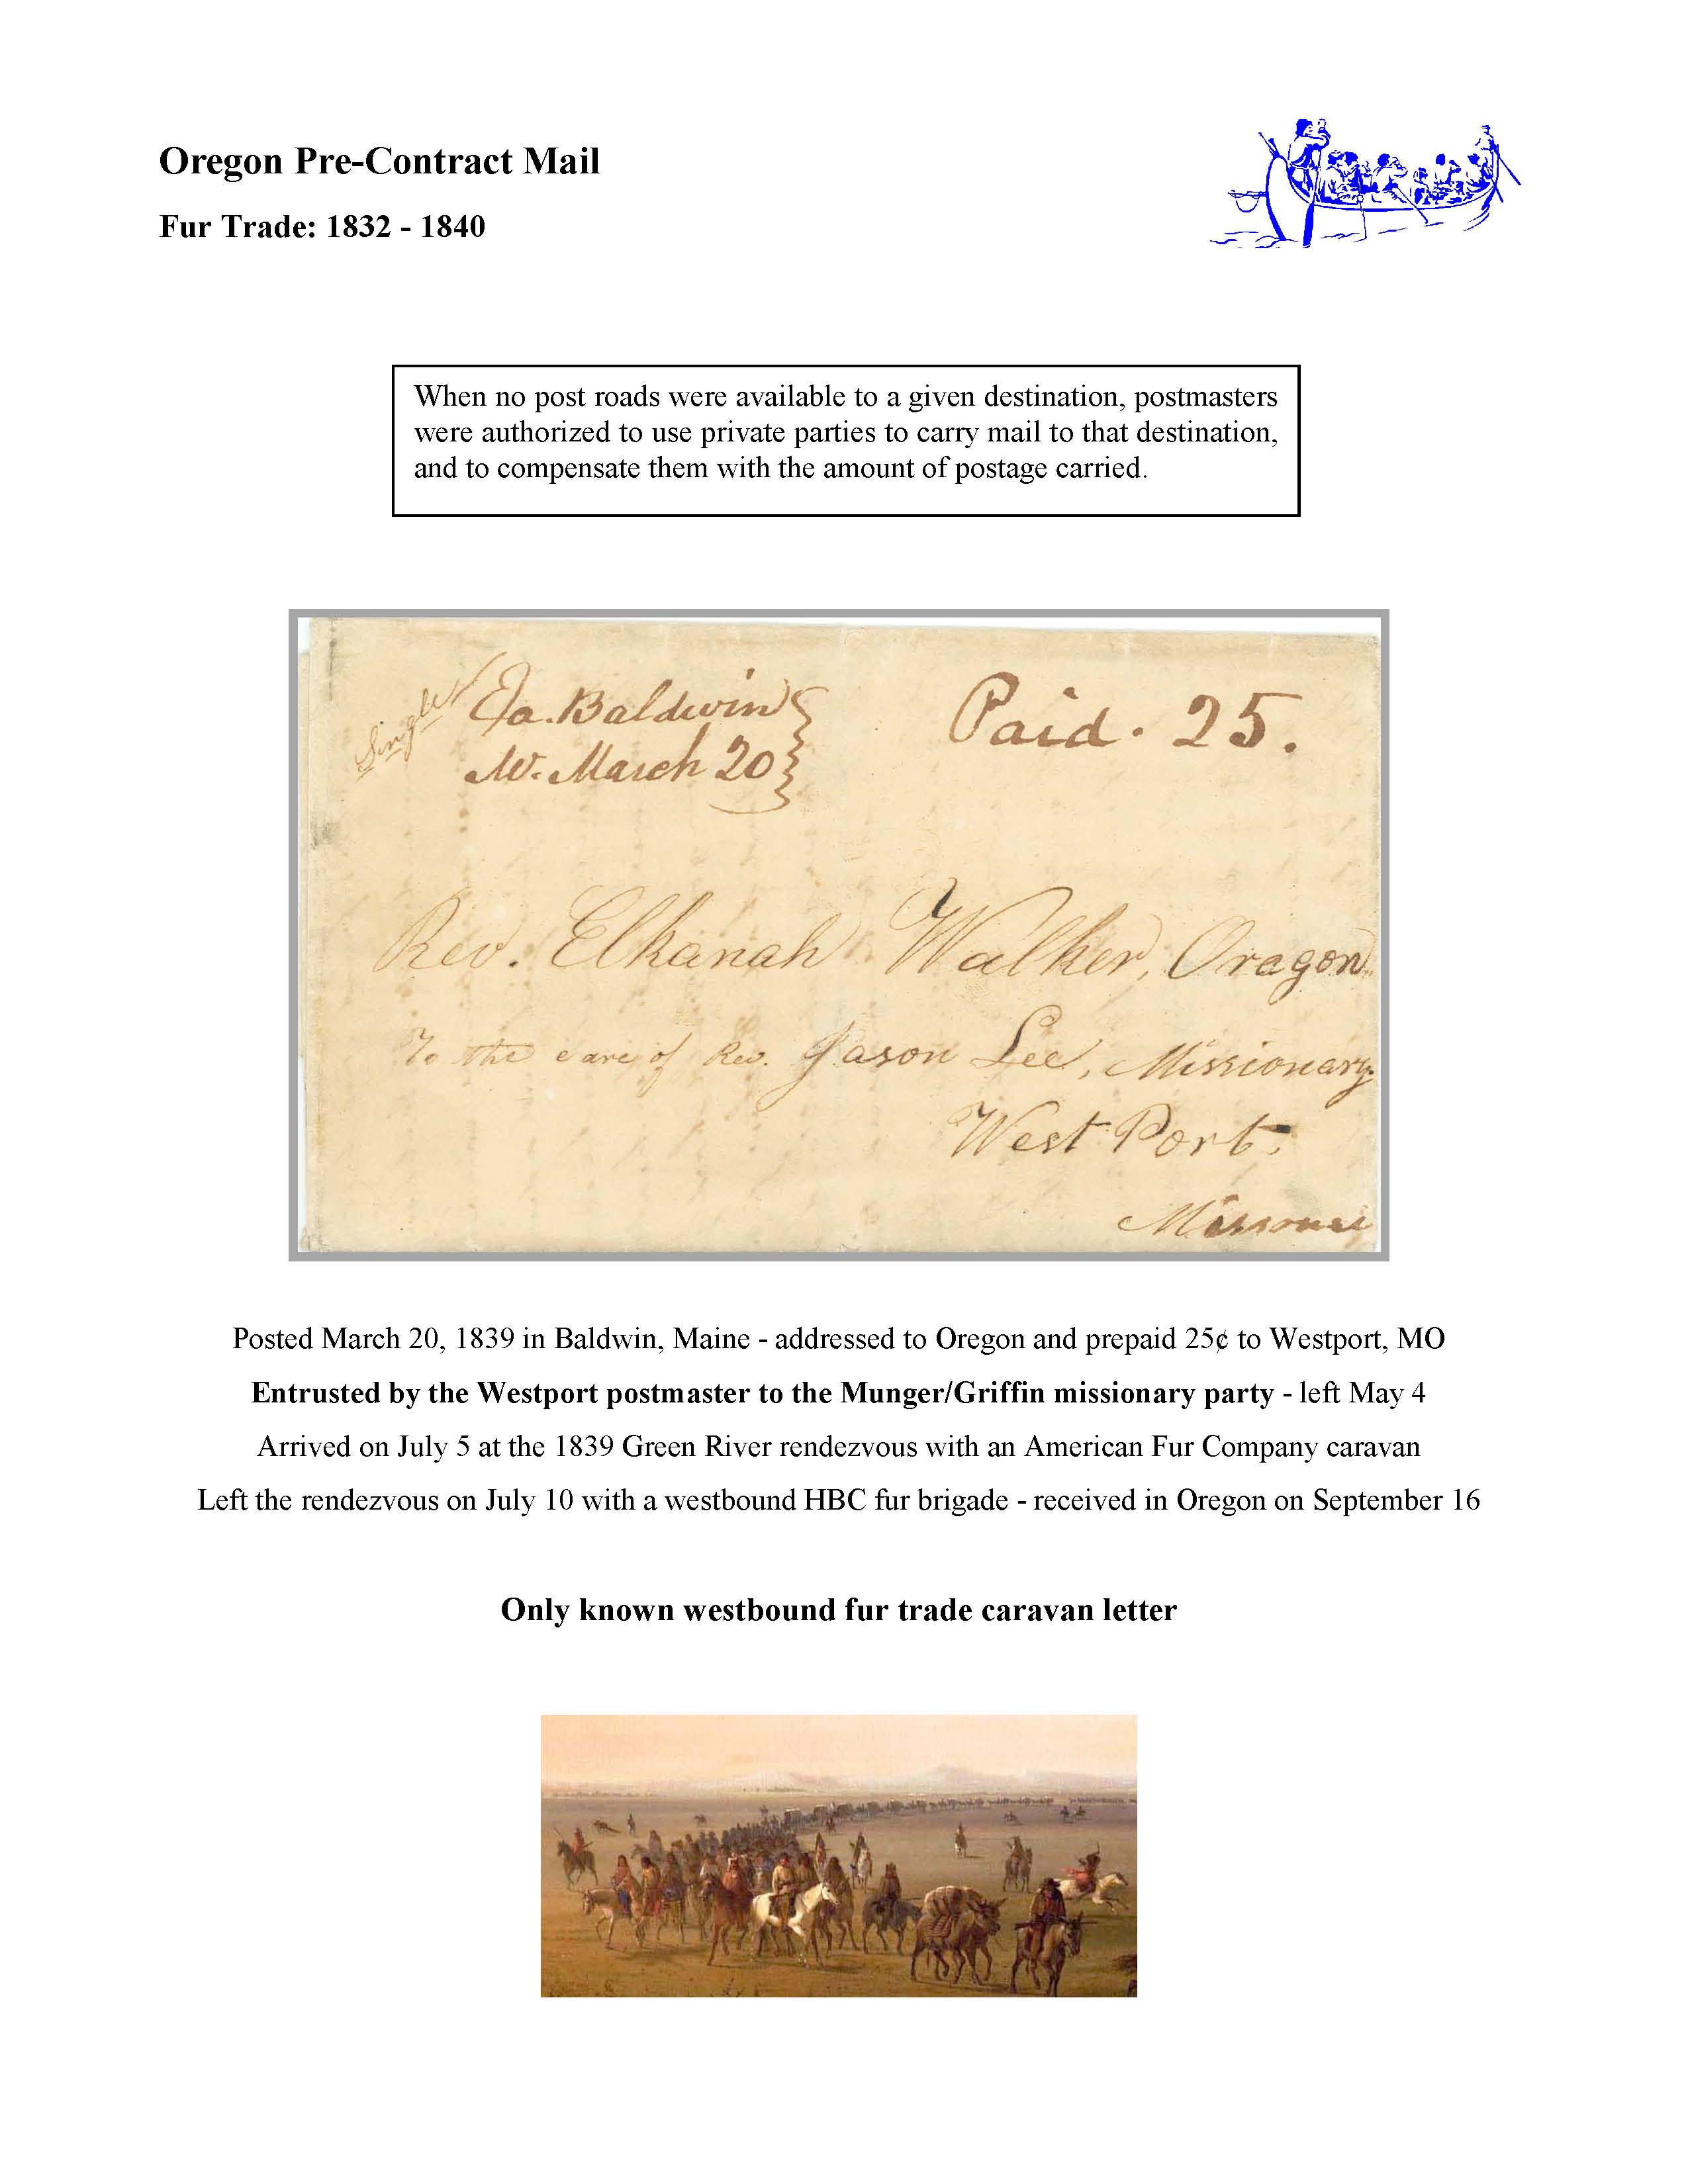 Oregon Pre-Contract Mail
Fur Trade: 1832 - 1840
When no post roads were available to a given destination, postmasters
were authorized to use private parties to carry mail to that destination,
and to compensate them with the amount of postage carried.
Single
Ea. Baldwin
M. March 20
Paid. 25.
Rev. Elkanah Walker, Oragon
To the care of Rev. Jason Lee, Missionary.
West Port,
Missouri
Posted March 20, 1839 in Baldwin, Maine - addressed to Oregon and prepaid 25¢ to Westport, MO
Entrusted by the Westport postmaster to the Munger/Griffin missionary party - left May 4
Arrived on July 5 at the 1839 Green River rendezvous with an American Fur Company caravan
Left the rendezvous on July 10 with a westbound HBC fur brigade - received in Oregon on September 16
Only known westbound fur trade caravan letter